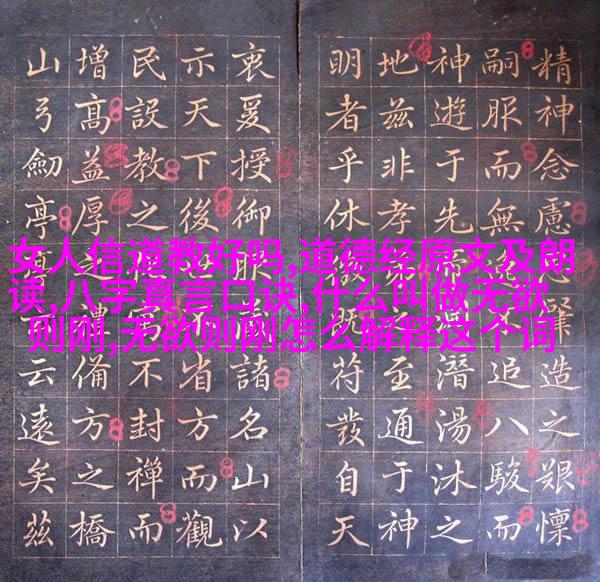 女人信道教好吗,道德经原文及朗
读,八字真言口诀,什么叫做无欲
则刚,无欲则刚怎么解释这个词
精神念慮造之艱懍
嗣服而無追八駿而
神遊于先潛湯沐之
地茲非孝至通于神
明者乎休既符發自天
衷爰授御諸名山以
示天下後省方而觀
民設教之不封禪而
增高益厚備方之橋
山弓劍亭云遠矣茲